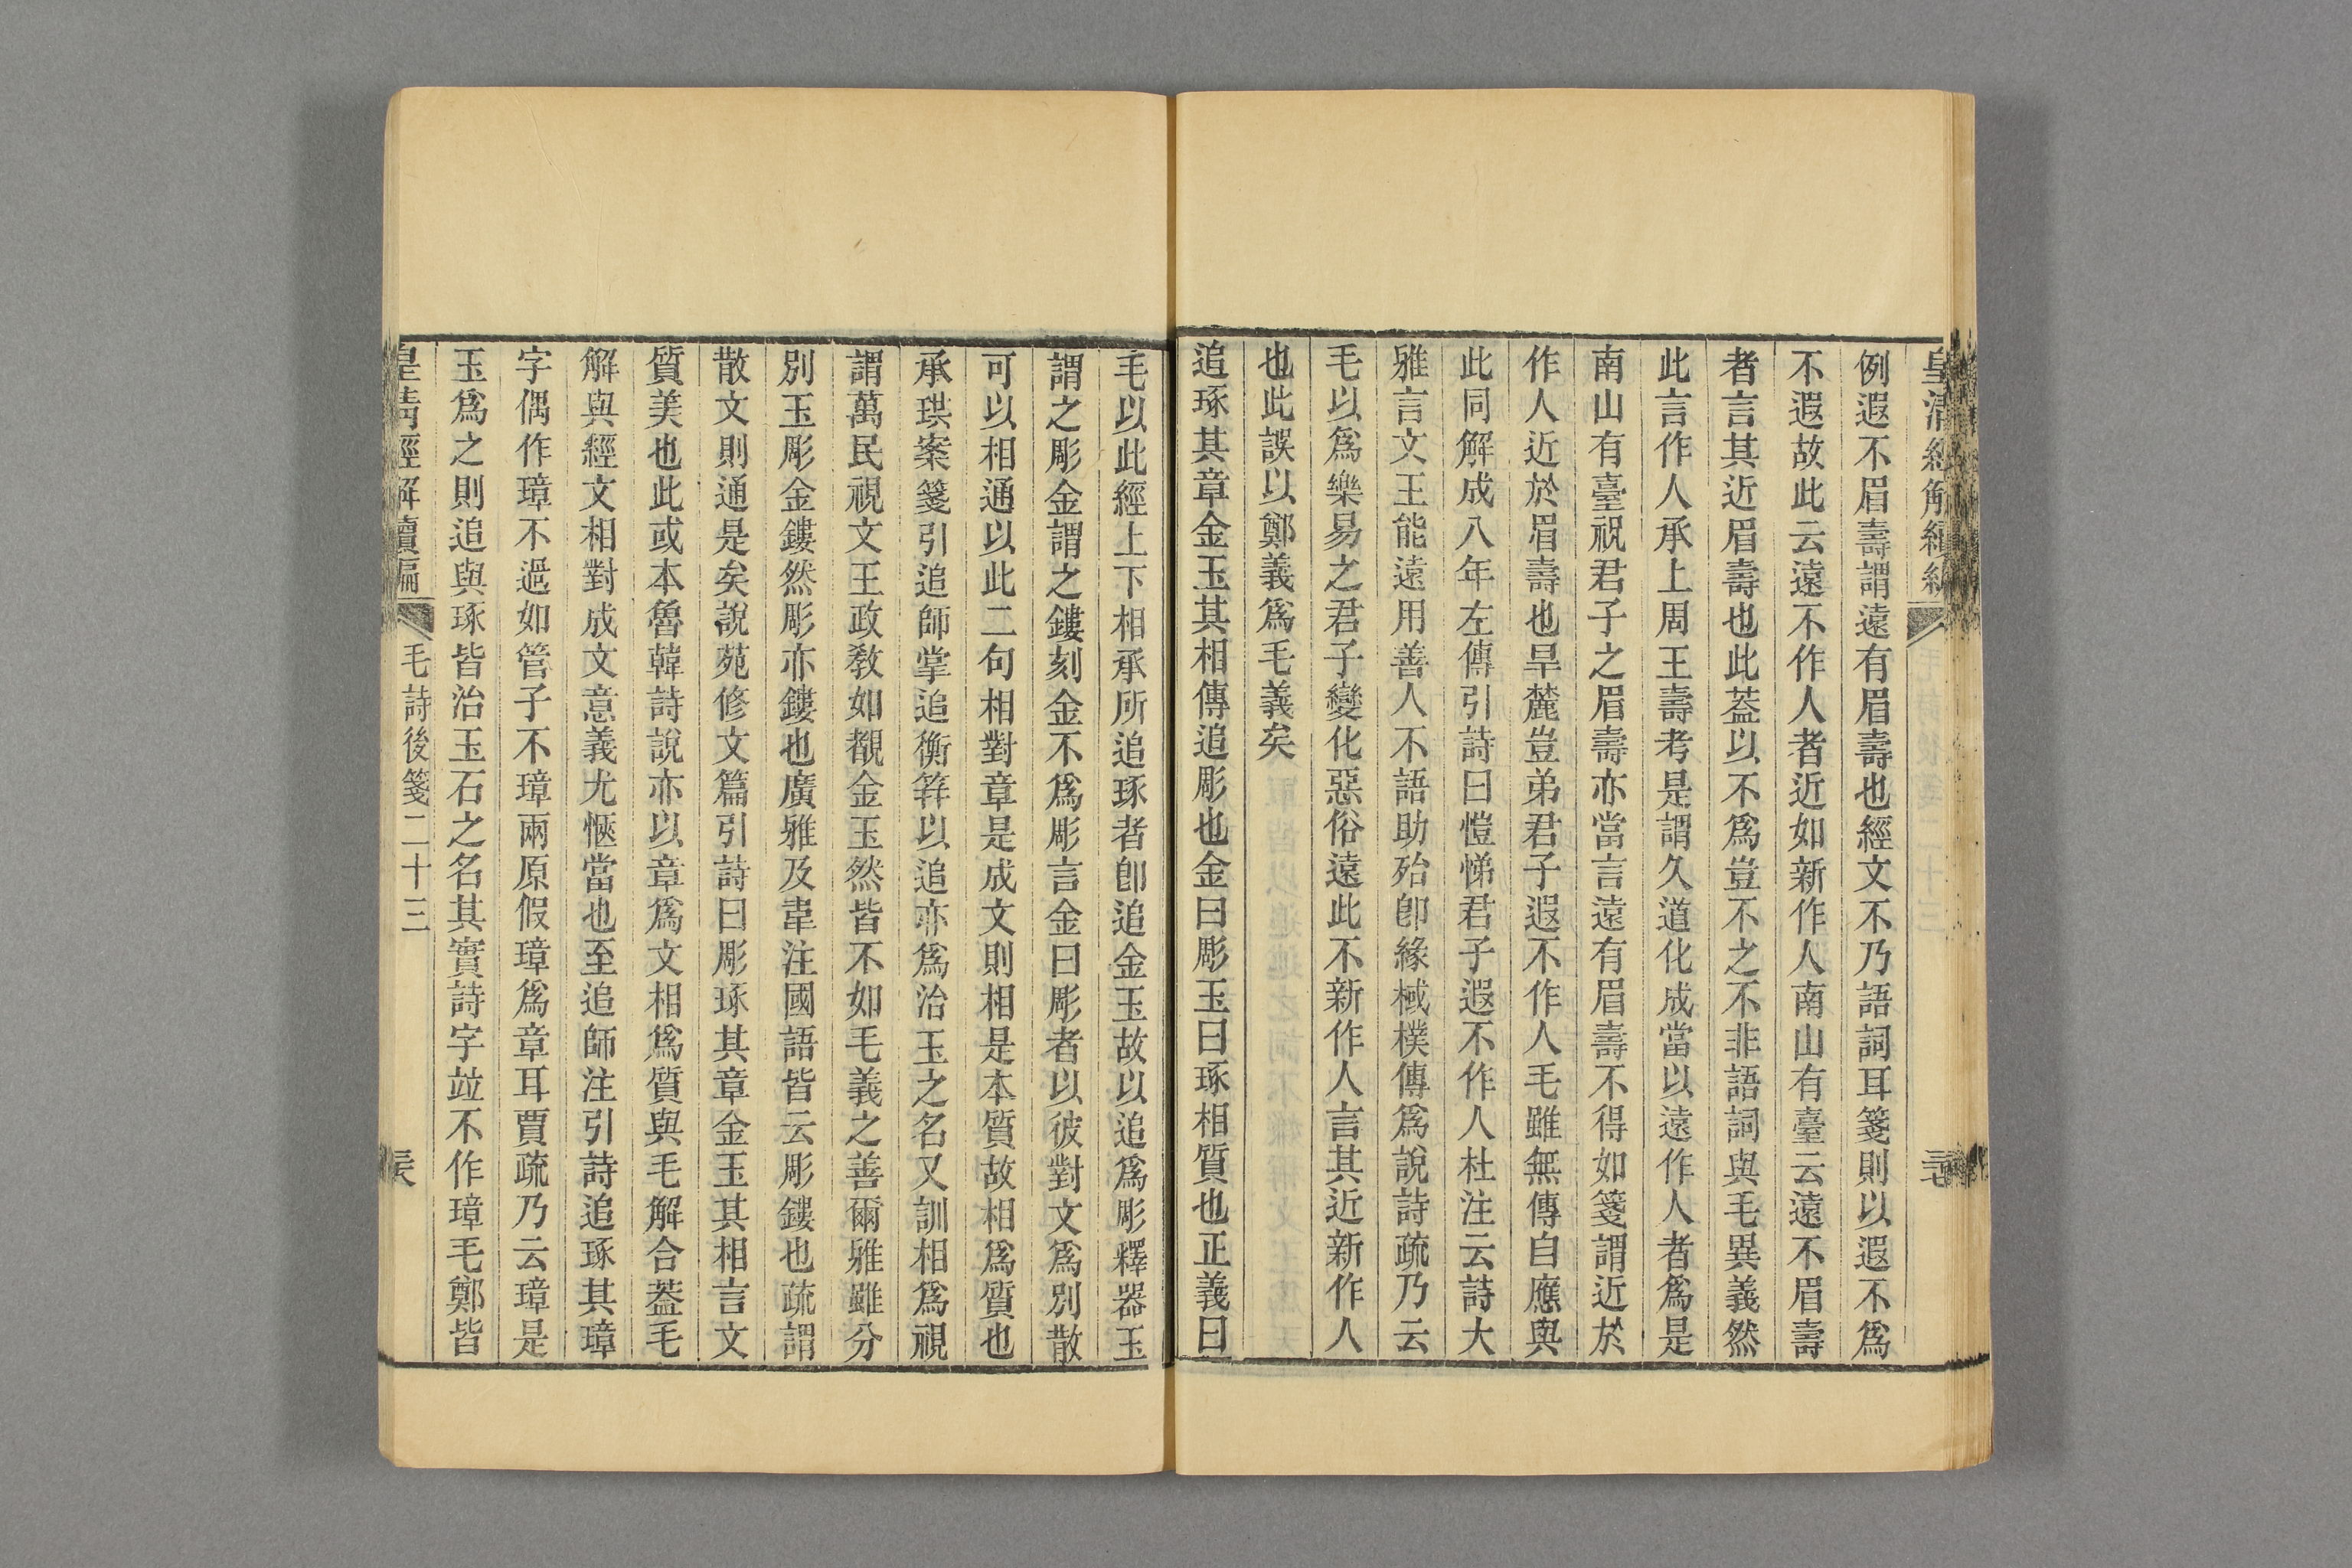 皇清經解續編
例遐不眉壽謂遠有眉壽也經文不乃語詞耳箋則以遐不爲
不遐故此云遠不作人者近如新作人南山有臺云遠不眉壽
者言其近眉壽也此葢以不爲豈不之不非語詞與毛異義然
此言作人承上周王壽考是謂久道化成當以遠作人者爲是
南山有臺祝君子之眉壽亦當言遠有眉壽不得如箋謂近於
作人近於眉壽也旱麓豈弟君子遐不作人毛雖無傳自應與
此同解成八年左傳引詩曰愷悌君子遐不作人杜注云詩大
雅言文王能遠用善人不語助殆卽緣棫樸傳爲說詩疏乃云
毛以爲樂易之君子變化惡俗遠此不新作人言其近新作人
也此誤以鄭義爲毛義矣
追琢其章金玉其相傳追彫也金曰彫玉曰琢相質也正義曰
毛以此經上下相承所追琢者卽追金玉故以追爲彫釋器玉
謂之彫金謂之鏤刻金不爲彫言金曰彫者以彼對文爲別散
可以相通以此二句相對章是成文則相是本質故相爲質也
承珙案箋引追師掌追衡筓以追亦爲治玉之名又訓相爲視
謂萬民視文王政敎如覩金玉然皆不如毛義之善爾雅雖分
別玉彫金鏤然彫亦鏤也廣雅及韋注國語皆云彫鏤也疏謂
散文則通是矣說苑修文篇引詩曰彫琢其章金玉其相言文
質美也此或本魯韓詩說亦以章爲文相爲質與毛解合葢毛
解與經文相對成文意義尤愜當也至追師注引詩追琢其璋
字偶作璋不過如管子不璋兩原假璋爲章耳賈疏乃云璋是
玉爲之則追與琢皆治玉石之名其實詩字竝不作璋毛鄭皆
皇清經解續編
毛詩後箋二十三